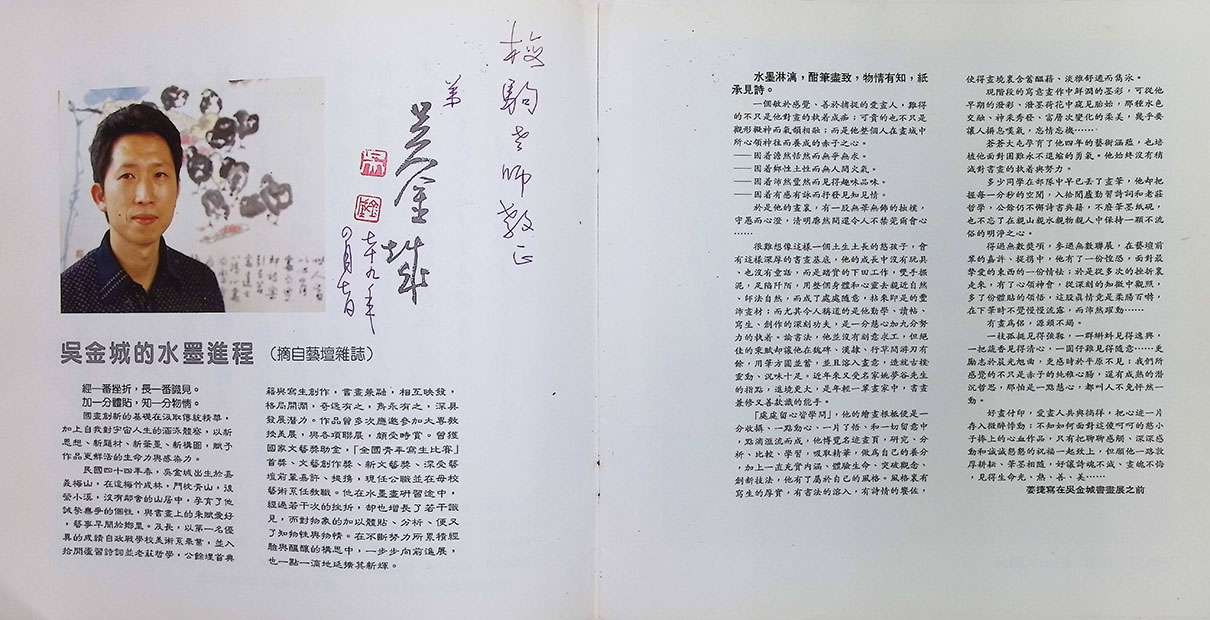 校駒老師教正
弟
吳金城
七十九年
吳金城的水墨進程（摘自藝壇雜誌）
經一番挫折，長一番識見。
加一分體貼，知一分物情。
國畫創新的基礎在汲取傳統精華，
加上自我對宇宙人生的涵泳體察，以新
思想、新題材、新筆墨、新構圖，賦予
作品更鮮活的生命力與感染力。
民國四十四年春，吳金城出生於嘉
義梅山，在這梅竹成林，門枕青山，後
縈小溪，沒有鄰舍的山居中，孕育了他
誠摯無爭的個性，與書畫上的秉賦愛好
，藝事早聞於鄉里。及長，以第一名優
異的成績自政戰學校美術系畢業，並入
拾閒廬習詩詞並老莊哲學，公餘埋首典
籍與寫生創作，書畫兼融，相互映發，
格局開濶，奇逸有之，雋永有之，深具
發展潛力。作品曾多次應邀參加大專教
授美展，與各項聯展，頗受時賞。曾獲
國家文藝獎助金，「全國青年寫生比賽」
首獎、文藝創作獎、新文藝獎、深受藝
壇前輩嘉許、提攜，現任公職並在母校
藝術系任敎職。他在水墨畫研習途中，
經過若干次的挫折，卻也增長了若干識
見，而對物象的加以體貼、分析、便又
了知物性與物情。在不斷努力所累積經
驗與醞釀的構思中，一步步向前進展，
也一點一滴地延擴其新輝。
水墨淋漓，酣筆盡致，物情有知，紙
承見詩。
一個敏於感覺、善於捕捉的愛畫人，難得
的不只是他對畫的執着成痴；可貴的也不只是
觀形擬神而氣韻相融；而是他整個人在畫域中
所心領神往而養成的赤子之心。
——因着澹然恬然而無爭無求。
——因着鄉性土性而無人間火氣。
——因着沛然瑩然而見得趣味品味。
——因着有感有詠而抒發見知見情。
於是他的畫裏，有一股無華無飾的拙樸，
守愚而心澄，清明廓然間還令人不禁莞爾會心
……
很難想像這樣一個土生土長的憨孩子，會
有這樣深厚的書畫基底，他的成長中沒有玩具
、也沒有童話，而是踏實的下田工作，雙手握
泥，足陷阡陌，用整個身體和心靈去親近自然
、師法自然，而成了處處隨意，拈來即是的豐
沛畫材；而尤其令人稱道的是他勤學、讀帖、
寫生、創作的深刻功夫，是一分慈心加九分努
力的執着。論書法，他並沒有刻意求工，但絕
佳的秉賦却讓他在魏碑、漢隸、行草間游刃有
餘，用筆方圓並蓄，並且溶入畫意，造就古樸
靈動、況味十足。近年來又受名家姚夢谷先生
的指點，進境更大，是年輕一輩畫家中，書畫
兼修又善款識的能手。
「處處留心皆學問」，他的繪畫根柢便是一
分收攝、一點勤心、一片了悟、和一切留意中
，點滴滙流而成，他博覽名迹畫頁，研究、分
析、比較、學習，吸取精華，做爲自己的養分
，加上一直充實內涵、體驗生命、突破觀念、
創新技法，他有了屬於自己的風格。風格裏有
寫生的厚實，有書法的溶入，有詩情的饗佐，
使得畫境裏含蓄醞藉、淡雅舒適而雋泳。
現階段的寫意畫作中鮮濶的墨彩，可從他
早期的潑彩、潑墨荷花中窺見胎始，那種水色
交融、神來秀發、富層次變化的柔美，幾乎要
讓人摒息嘆氣，忘情忘機……
蒼蒼大屯孕育了他四年的藝術涵蘊，也培
植他面對困難永不退縮的勇氣。他始終沒有稍
減對書畫的執着與努力。
多少同學在部隊中早已丟了畫筆，他却把
握每一分秒的空閒，入拾閒廬勤習詩詞和老莊
哲學，公餘仍不懈詩書典籍，不廢筆墨紙硯，
也不忘了在親山親水親物親人中保持一顆不流
俗的明淨之心。
得過無數獎項，參過無數聯展，在藝壇前
輩的嘉許、提携中，他有了一份惶惑，面對最
摯愛的東西的一份情怯；於是從多次的挫折裏
走來，有了心領神會，從深刻的知微中觀照，
多了份體貼的領悟，這股真情竟是柔腸百轉，
在下筆時不覺慢慢流露，而沛然躍動……
有畫爲侶，源頭不竭。
一枝孤挺見得強靱，一群蝌蚪見得逸興，
一把蔬香見得清心，一圍仔雞見得隨意……更
勵志於晨光旭曲，更感時於平原不見；我們所
感覺的不只是赤子的純雅心腸，還有成熟的潛
沉哲思，那怕是一點慈心，都叫人不免怦然一
動。
好畫付印，愛畫人具與徜徉，把心迹一片
存入微醉悸動；不知如何面對這傻呵呵的慈小
子捧上的心血作品，只有把聊聊感朝、深深感
動和誠誠懇懇的祝福一起致上，但願他一路敦
厚耕耘、筆墨相隨，好讓詩魂不滅、畫魂不悔
，見得生命光、熱、善、美……
姜捷寫在吳金城書畫展之前